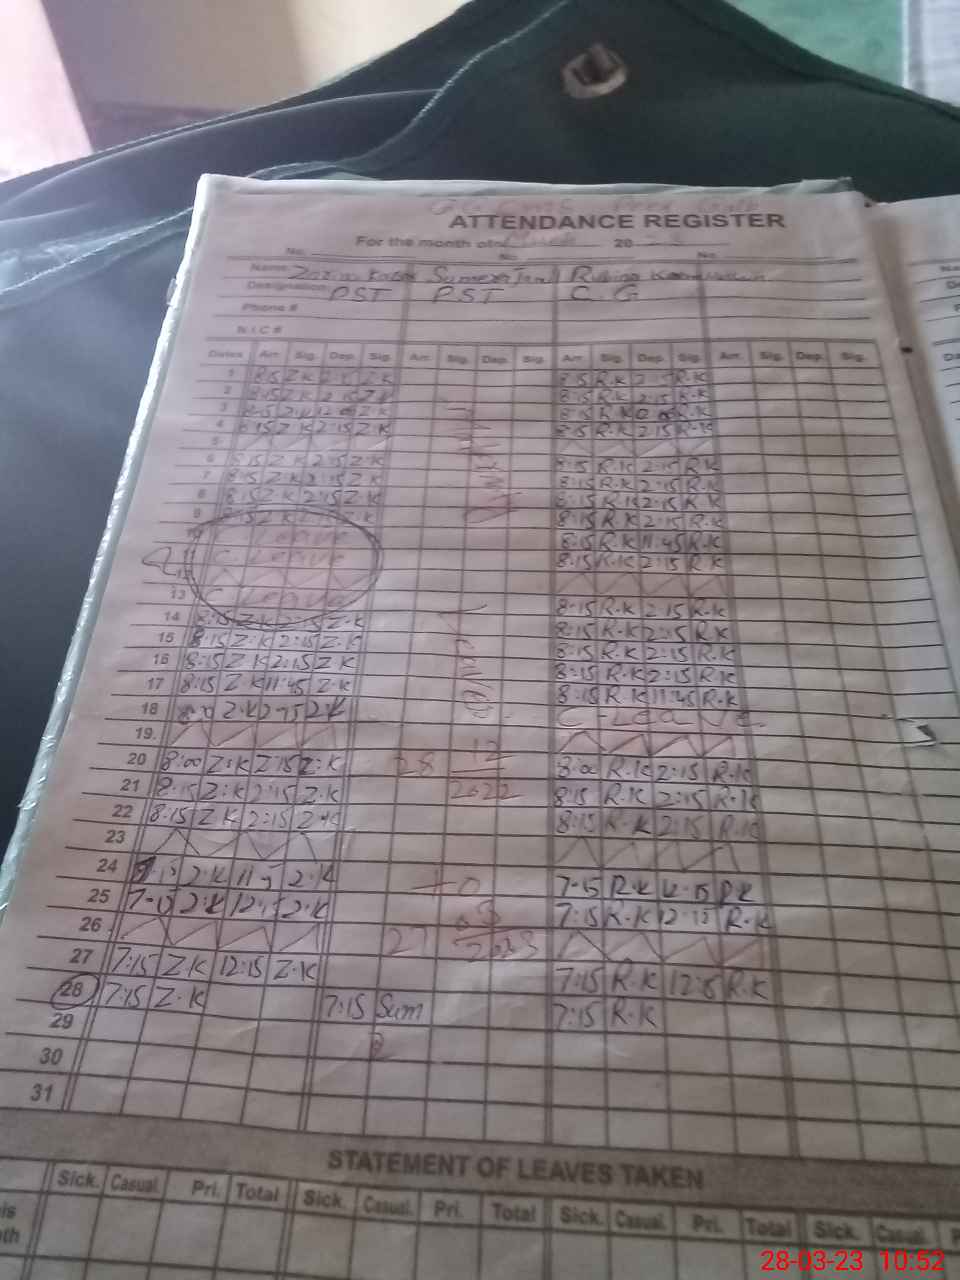 ATTENDANCE REGISTER
For the month of 20
No. No. No.
Name: Kabal Sumera Rubina
Designation: PST PST C.G
Phone #
N.I.C #
Dates Arr. Sig. Dep. Sig. Arr. Sig. Dep. Sig. Arr. Sig. Dep. Sig. Arr. Sig. Dep. Sig.
1 8:15 Z.K 2:15 Z.K 8:15 R.K 2:15 R.K
2 8:15 Z.K 2:15 Z.K 8:15 R.K 2:15 R.K
3 8:15 Z.K Z.K 8:15 R.K R.K
4 8:15 Z.K 2:15 Z.K 8:15 R.K 2:15 R.K
5
6 8:15 Z.K 2:15 Z.K 8:15 R.K 2:15 R.K
7 8:15 Z.K 2:15 Z.K 8:15 R.K 2:15 R.K
8 8:15 Z.K 2:15 Z.K 8:15 R.K 2:15 R.K
9 8:15 Z.K 2:15 Z.K 8:15 R.K 2:15 R.K
10 C Leave 8:15 R.K 11:45 R.K
11 C. Leave 8:15 R.K 2:15 R.K
12
13 C Leave 8:15 R.K 2:15 R.K
14 8:15 Z.K 2:15 Z.K 8:15 R.K 2:15 R.K
15 8:15 Z.K 2:15 Z.K 8:15 R.K 2:15 R.K
16 8:15 Z.K 2:15 Z.K 8:15 R.K 2:15 R.K
17 8:15 Z.K 11:45 Z.K 8:15 R.K 11:45 R.K
18 Z.K 2:15 Z.K C-Leave
19.
20 8:00 Z.K 2:15 Z.K 28 12 8:00 R.K 2:15 R.K
21 8:15 Z.K 2:15 Z.K 2022 8:15 R.K 2:15 R.K
22 8:15 Z.K 2:15 Z.K 8:15 R.K 2:15 R.K
23
24 Z.K Z.K To 7-15 R.K R.K
25 7-15 Z.K 12:15 Z.K 3 7:15 R.K 12:15 R.K
26 27 2023
27 7:15 Z.K 12:15 Z.K 7:15 R.K 12:15 R.K
28 7:15 Z.K 7:15 Sum 7:15 R.K
29
30
31
STATEMENT OF LEAVES TAKEN
Sick. Casual. Pri. Total Sick. Casual. Pri. Total Sick. Casual. Pri. Total Sick. Casual.
28-03-23 10:52